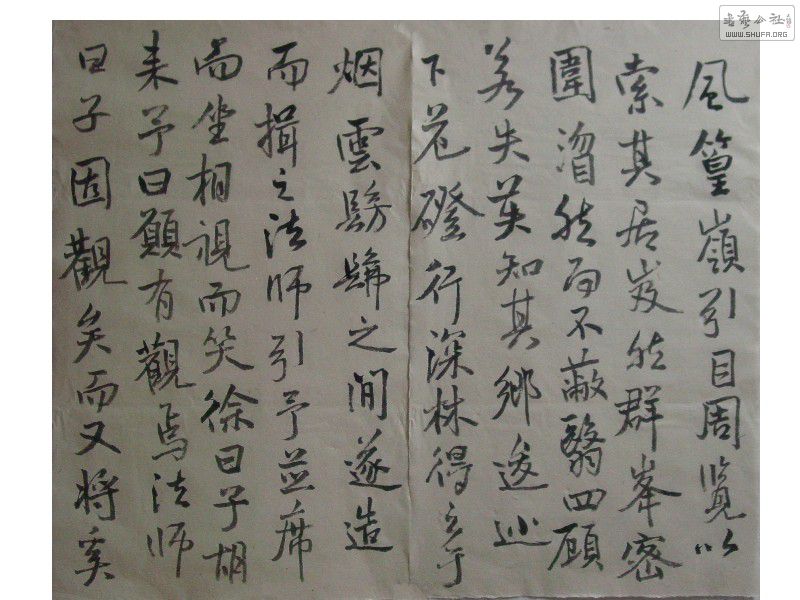 風篁嶺引目周覽以
索其居岌然群峯密
圍溜然而不蔽翳四顧
若失莫知其鄉逡巡
下危磴行深林得之于
烟雲髣髴之間遂造
而揖之法師引予並席
而坐相視而笑徐曰子胡
來予曰願有觀焉法師
曰子固觀矣而又將奚
書藝公社
WWW.SHUFA.ORG